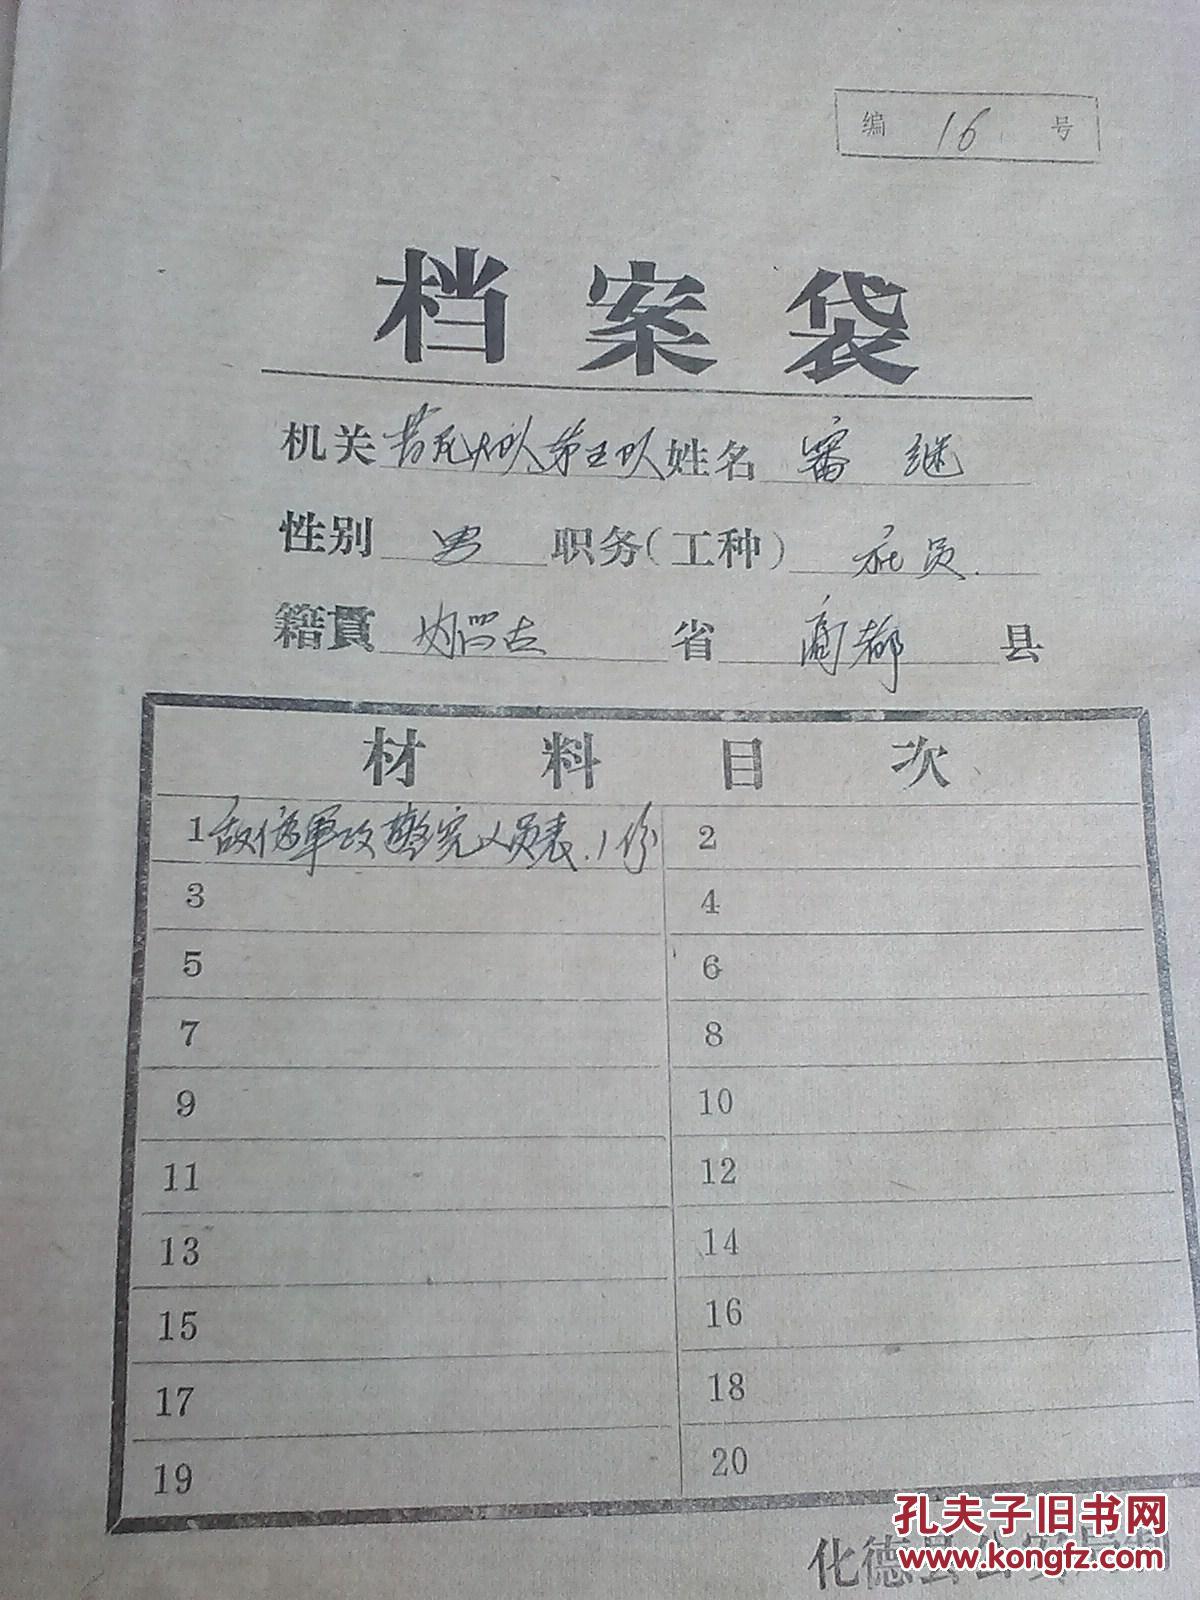 编 16 号
档案袋
机关 大队第五队 姓名 審 继
性别 男 职务(工种) 社员.
籍貫 内蒙古 省 商都 县
材料目次
1 敌伪軍政警宪人员表.1份 2
3 4
5 6
7 8
9 10
11 12
13 14
15 16
17 18
19 20
化德县公安局制
孔夫子旧书网
www.kongfz.com